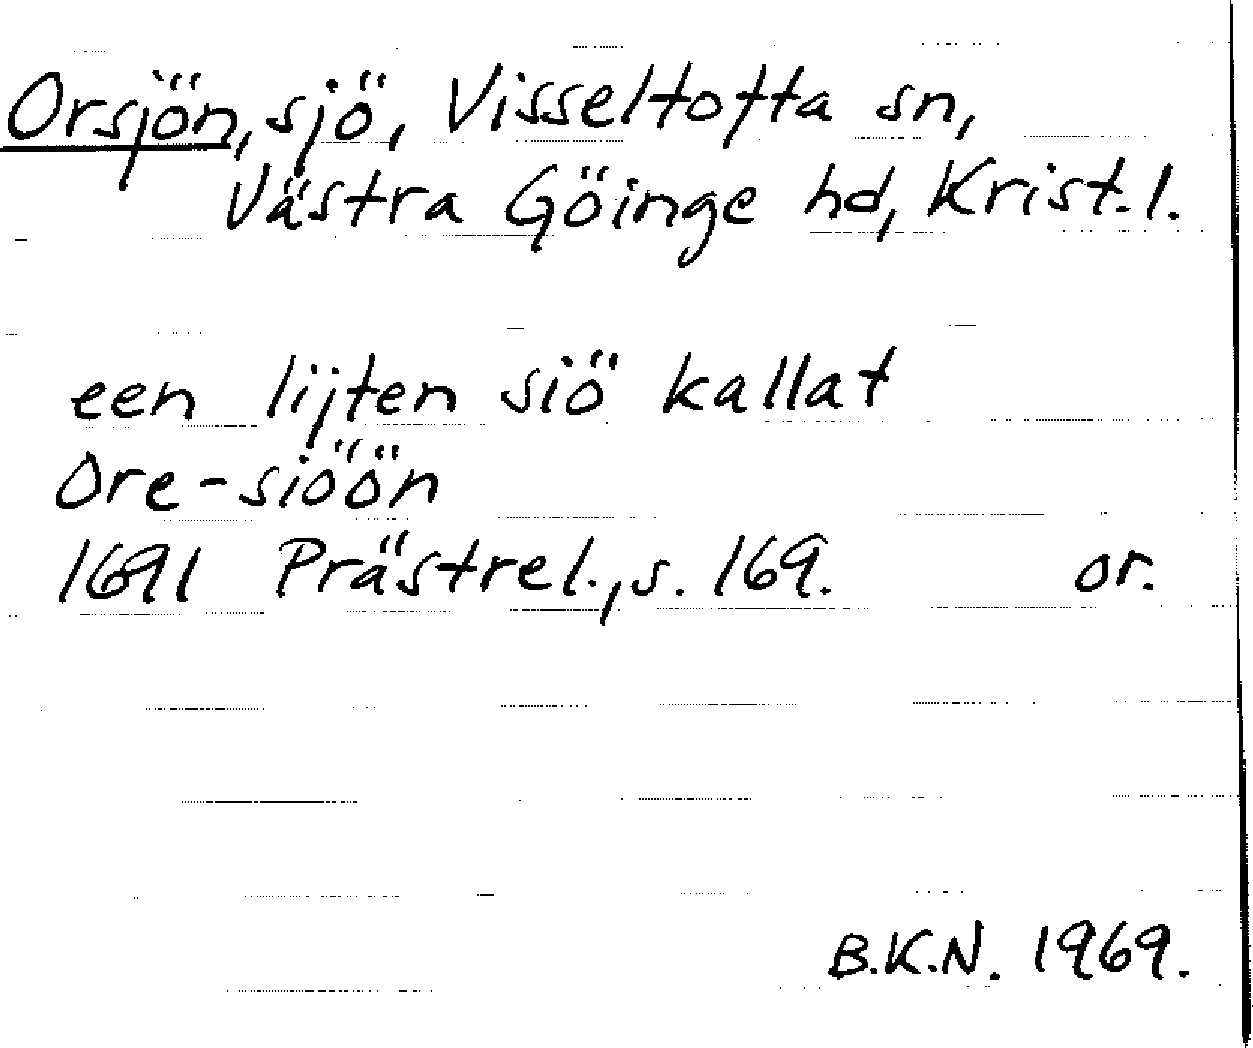 Orsjön, sjö, Visseltofta sn,
Västra Göinge hd, Krist. l.
een lijten siö kallat
Ore-siöön
1691 Prästrel., s. 169. or.
B.K.N. 1969.